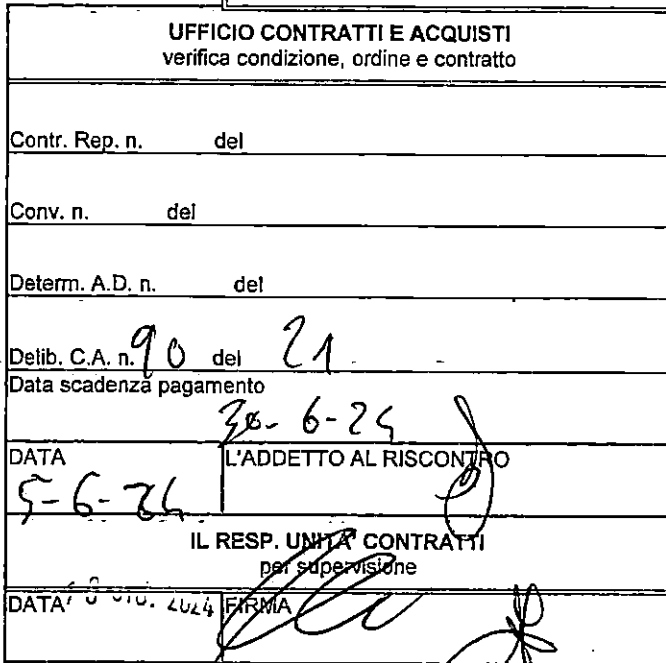 UFFICIO CONTRATTI E ACQUISTI
verifica condizione, ordine e contratto
Contr. Rep. n. del
Conv. n. del
Determ. A.D. n. del
Delib. C.A. n. 90 del 21
Data scadenza pagamento
30-6-24
DATA L'ADDETTO AL RISCONTRO
5-6-24
IL RESP. UNITA' CONTRATTI
per supervisione
DATA GIU. 2024 FIRMA